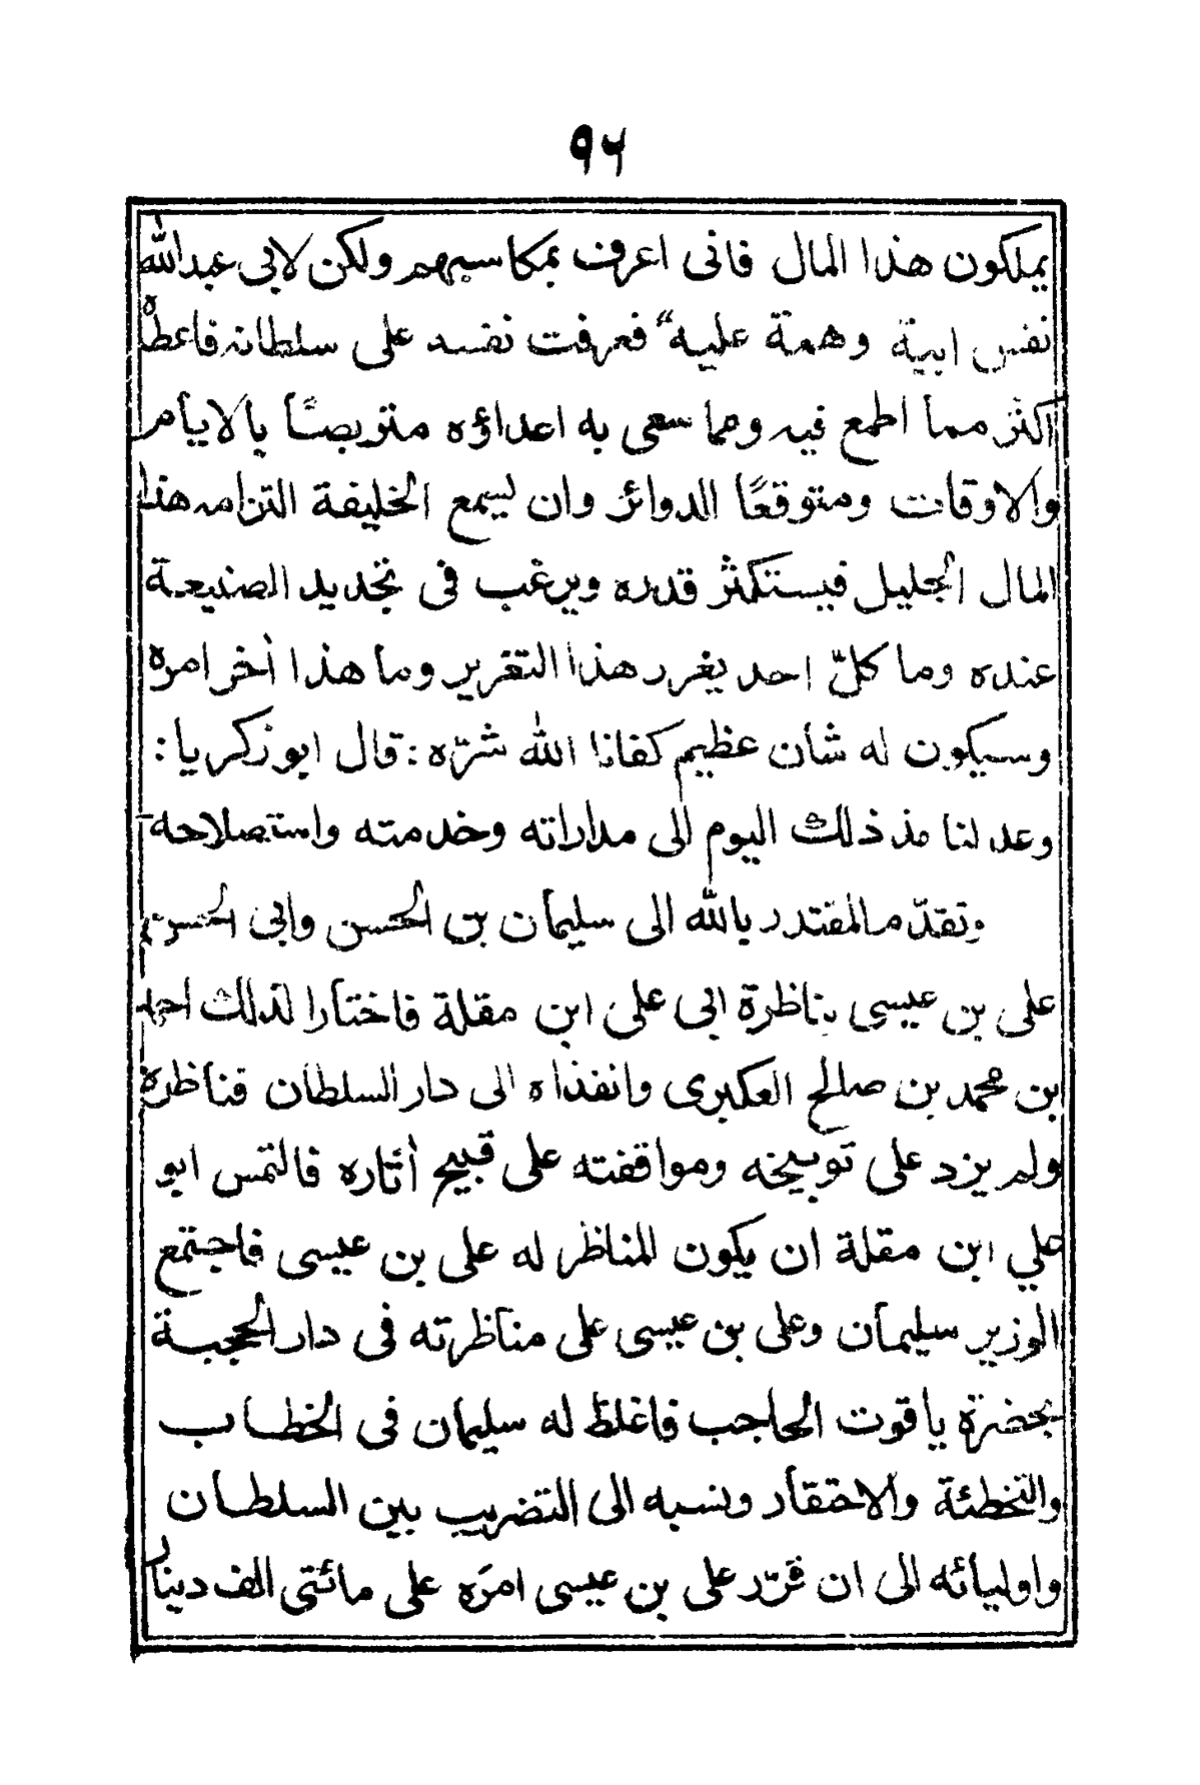 ٩٦
يملكون هذا المال فانى اعرف بمكاسبهم ولكن لابى عبدالله
نفس ابية وهمة علية" فعرفت نفسه على سلطانه فاعطاه
اكثر مما اطمع فيه ومما سعى به اعداؤه متربصًا بالايام
والاوقات ومتوقعًا الدوائر وان ليسمع الخليفة التزامه هذا
المال الجليل فيستكثر قدره ويرغب فى تجديد الصنيعة
عنده وما كلّ احد يغرر هذا التغرير وما هذا أخر امره
وسيكون له شأن عظيم كفانا الله شرّه : قال ابو زكريا :
وعدلنا مذ ذلك اليوم الى مداراته وخدمته واستصلاحه
وتقدّم المقتدر بالله الى سليمان بن الحسن وابى الحسن
على بن عيسى بناظرة ابى على ابن مقلة فاختارا لذلك احمد
بن محمد بن صالح العكبرى وانفذاه الى دار السلطان فناظره
ولم يزد على توبيخه ومواقفته على قبيح أثاره فالتمس ابو
علي ابن مقلة ان يكون المناظر له على بن عيسى فاجتمع
الوزير سليمان وعلى بن عيسى على مناظرته فى دار الحجبة
بحضرة ياقوت الحاجب فاغلظ له سليمان فى الخطاب
والتخطئة والاحتقار ونسبه الى التضريب بين السلطان
واوليائه الى ان قرّر على بن عيسى امره على مائتى الف دينار